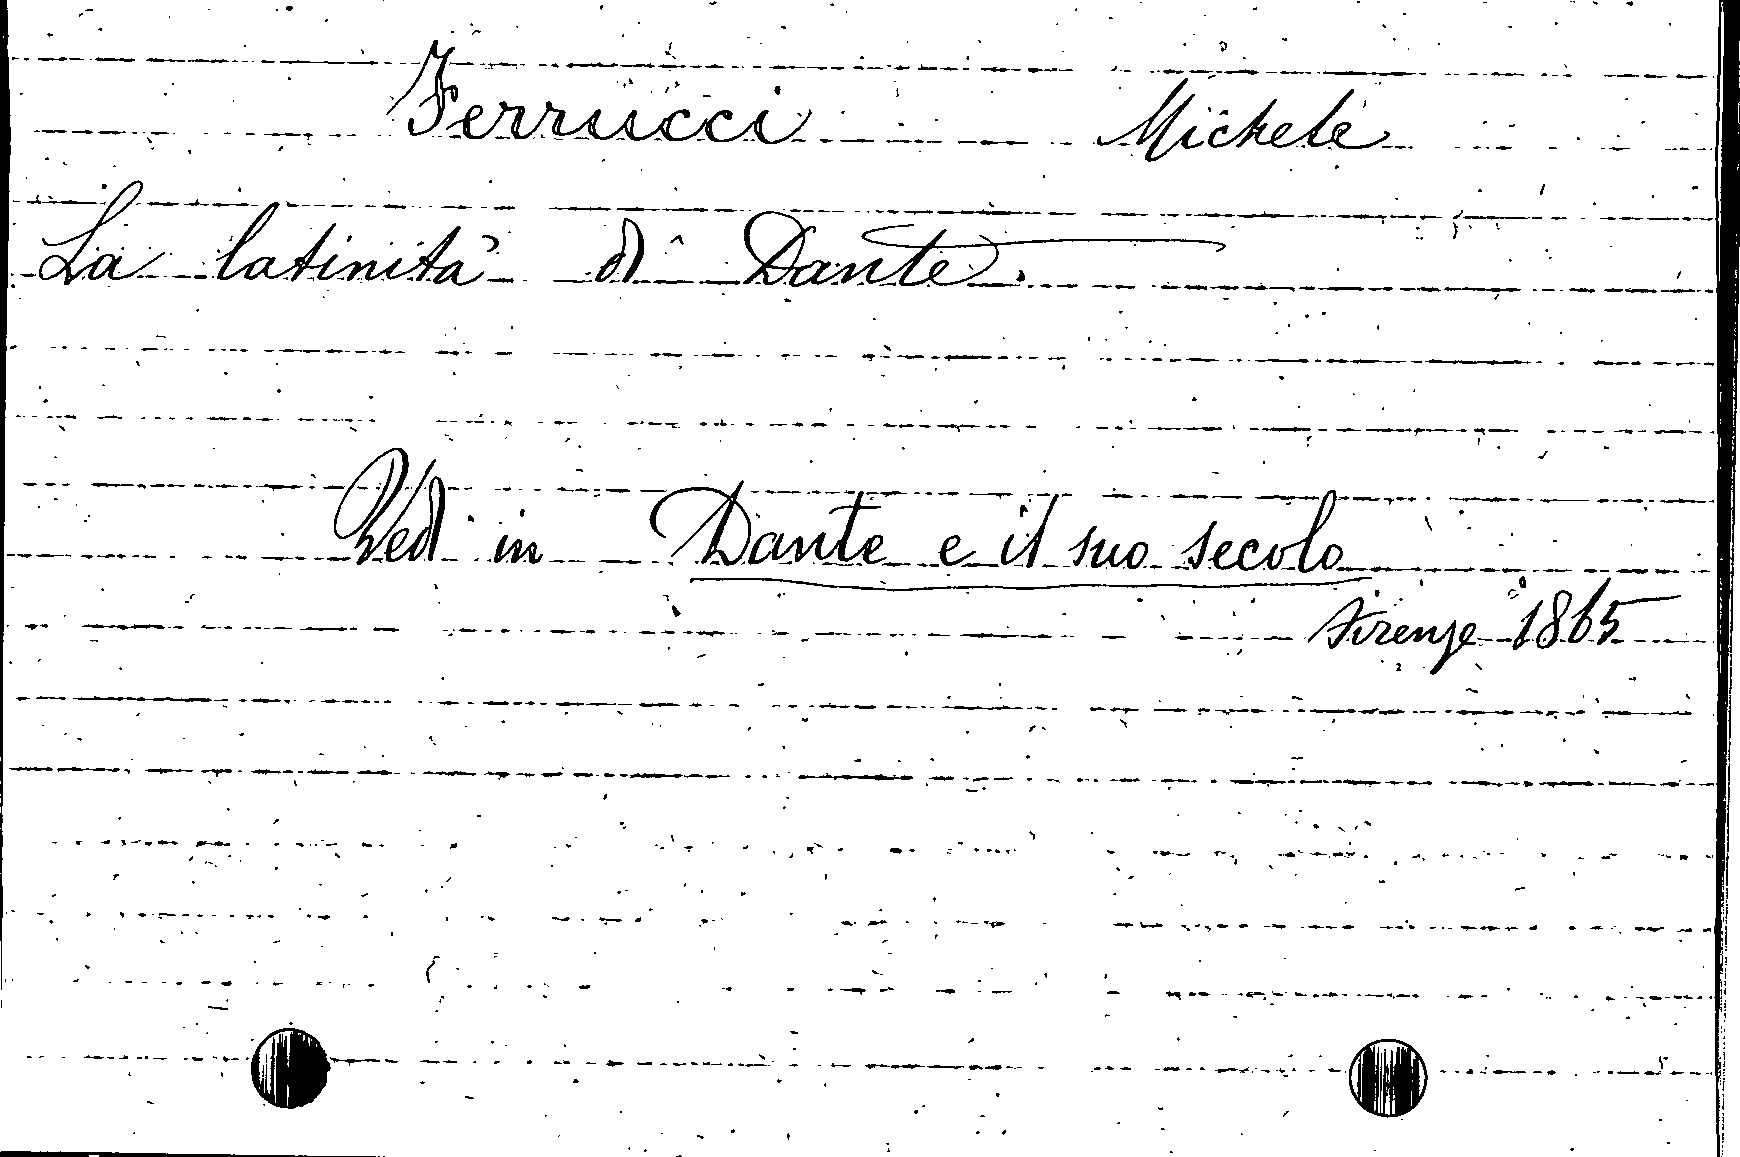 Ferrucci Michele
La latinità di Dante.
Vedi in Dante e il suo secolo
Firenze 1865